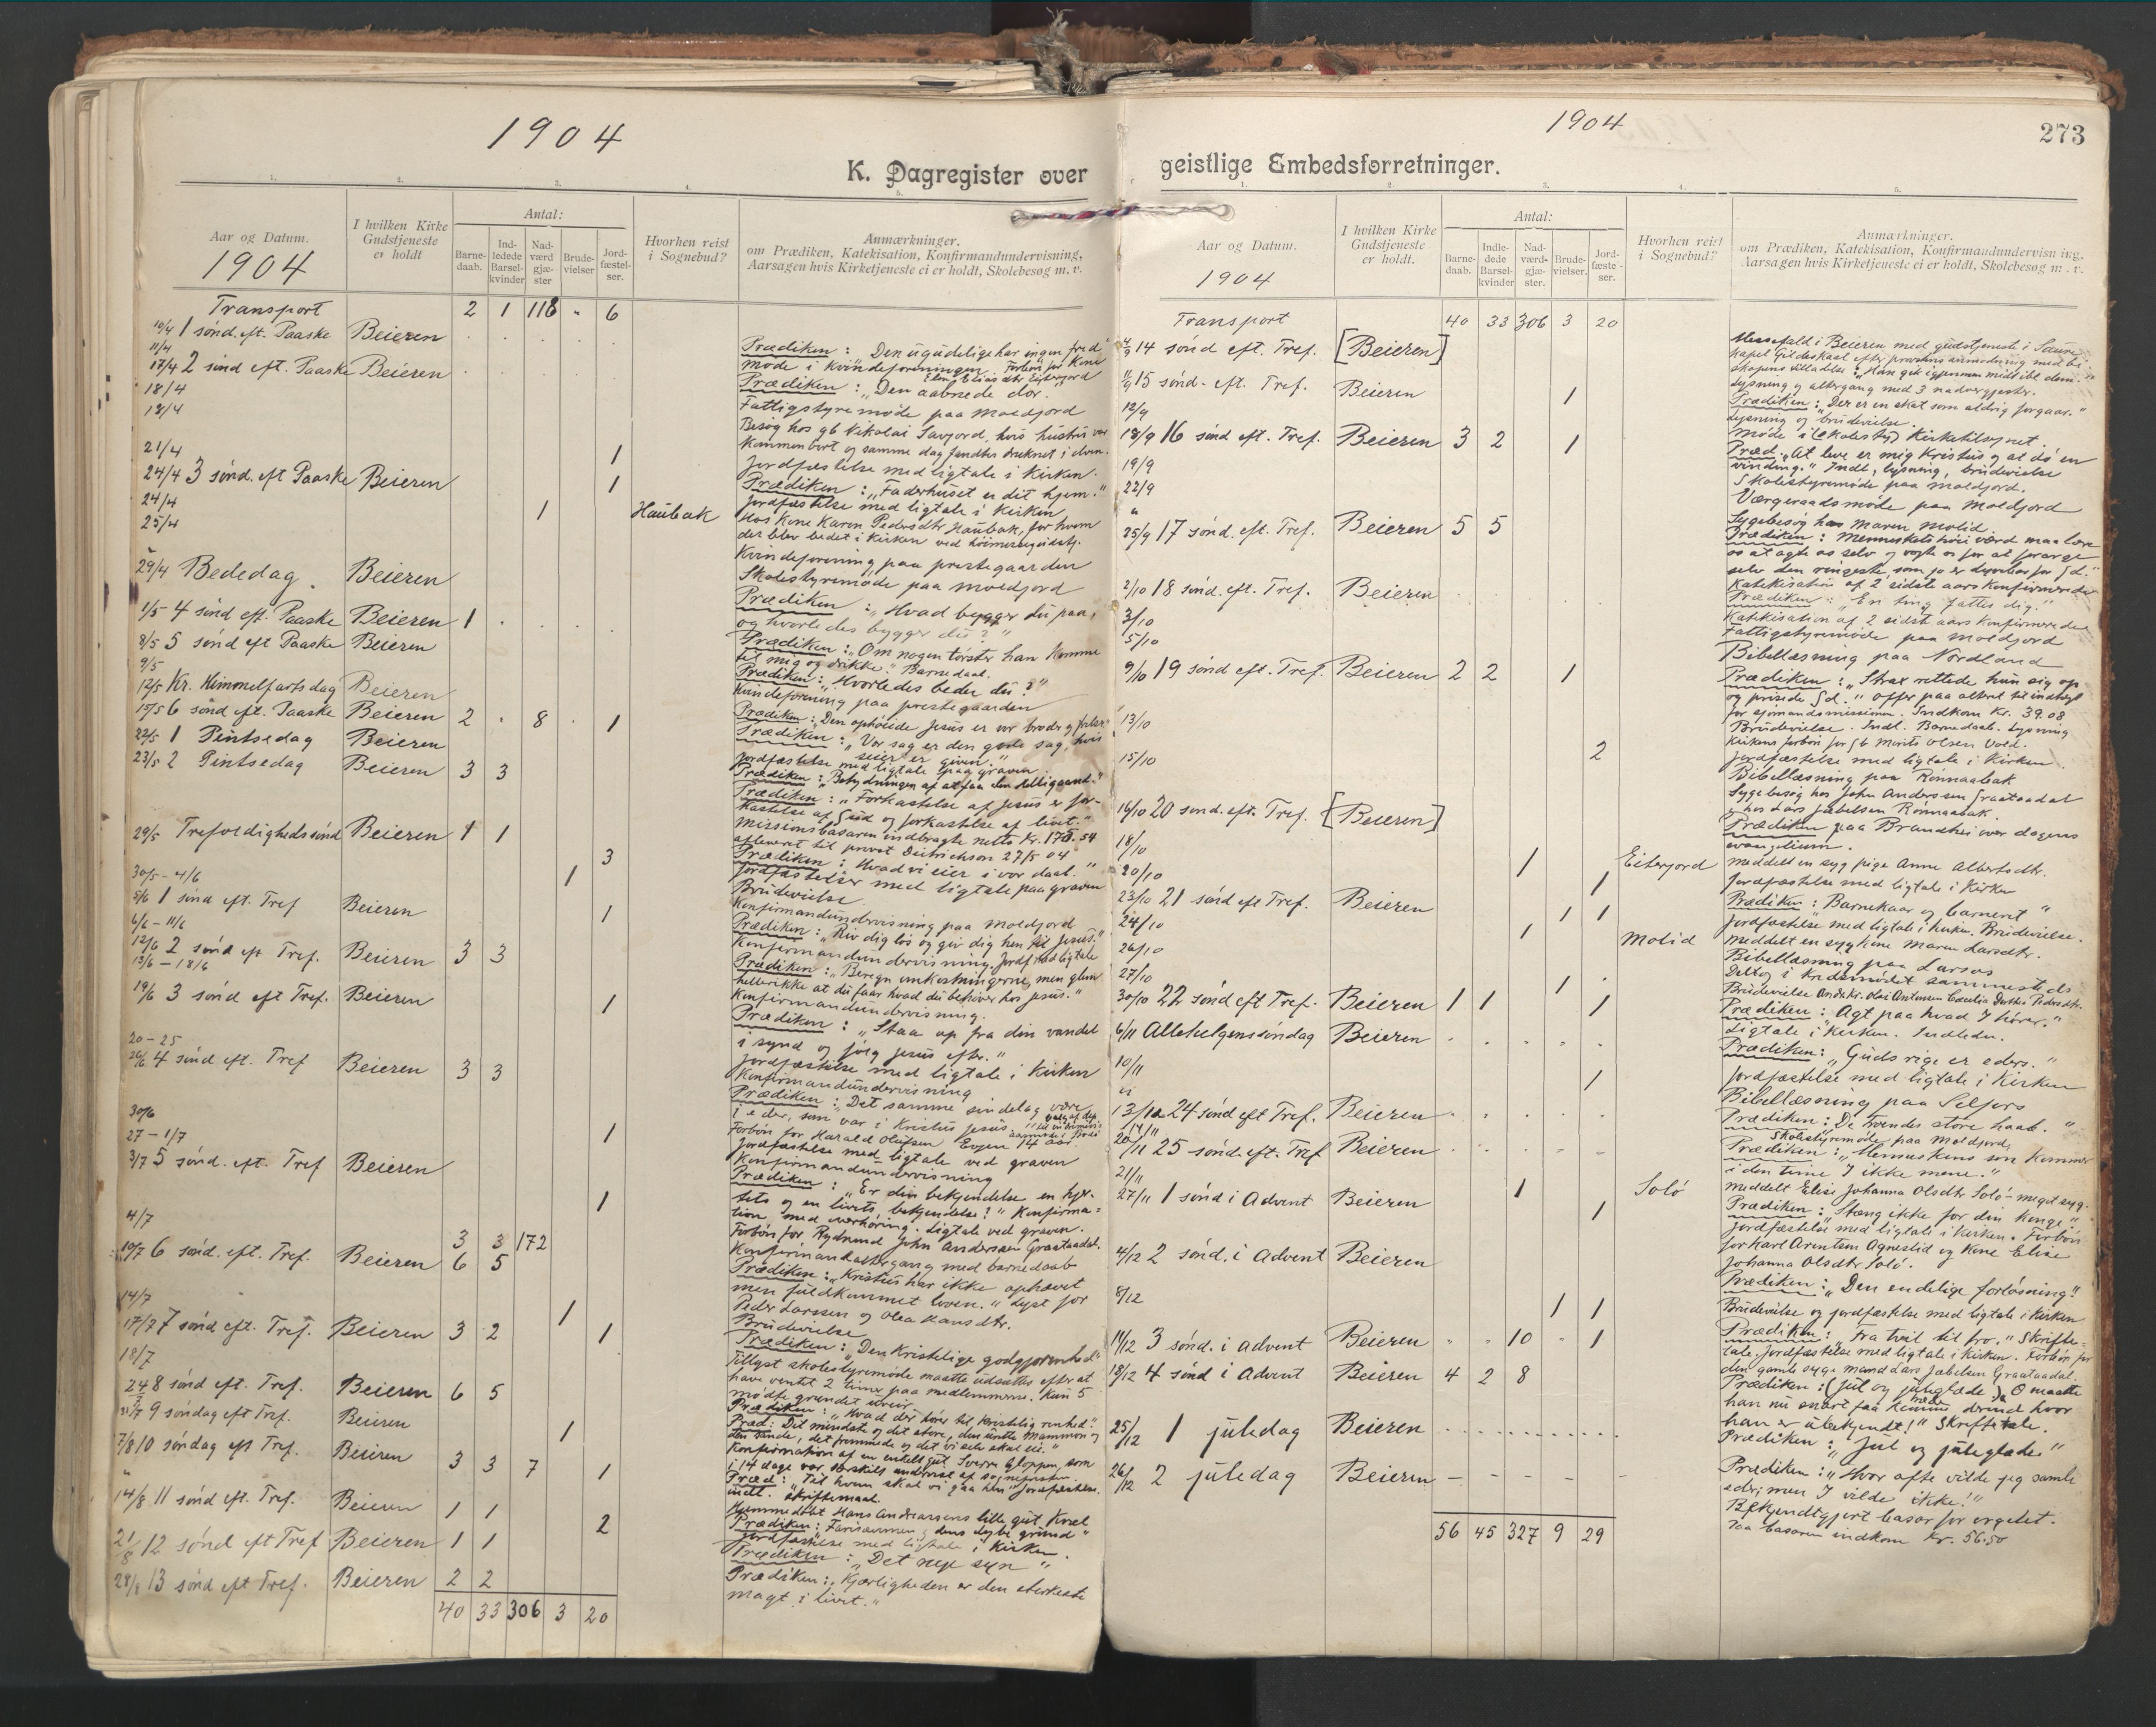 1904
K. Dagregister over
1. 2. 3. 4. 5.
Aar og Datum.
1904
I hvilken Kirke Gudstjeneste er holdt
Antal:
Barne-daab.
Ind-ledede Barsel-kvinder
Nad-værd gjæ-ster
Brude-vielser
Jord-fæstel-ser.
Hvorhen reist i Sognebud?
Anmærkninger.
om Prædiken, Katekisation, Konfirmandundervisning,
Aarsagen hvis Kirketjeneste ei er holdt, Skolebesøg m. v.
Transport 2 1 118 " 6
10/4 1 sønd. eft. Paaske Beieren
11/4
17/4 2 sønd eft. Paaske Beieren
18/4
18/4
21/4 1
24/4 3 sønd. eft Paaske Beieren 1
24/4 1 Haubak
25/4
"
29/4 Bededag Beieren
1/5 4 sønd eft. Paaske Beieren 1
8/5 5 sønd eft Paaske Beieren
9/5
12/5 Kr. Himmelfartsdag Beieren
15/5 6 sønd eft. Paaske Beieren 2 " 8 1
22/5 1 Pintsedag Beieren
23/5 2 Pintsedag Beieren 3 3
29/5 Trefoldighedssønd Beieren 1 1
3
30/5 - 4/6 1
5/6 1 sønd eft. Tref Beieren
6/6 - 11/6 1
12/6 2 sønd eft Tref. Beieren 3 3
13/6 - 18/6
19/6 3 sønd eft Tref. Beieren 1
20 - 25
26/6 4 sønd eft. Tref Beieren 3 3
30/6
27 - 1/7 1
3/7 5 sønd. eft. Tref Beieren
1
4/7 3 3 172
10/7 6 sønd. eft. Tref. Beieren 6 5
14/7 1
17/7 7 sønd eft. Tref. Beieren 3 2 1
18/7
24/7 8 sønd eft. Tref. Beieren 6 5
31/7 9 søndag eft Tref. Beieren 1
7/8 10 søndag eft Tref. Beieren 3 3 7 1
"
14/8 11 sønd eft. Tref. Beieren 1 1
2
21/8 12 sønd eft Tref Beieren 1 1
28/8 13 sønd eft Tref. Beieren 2 2
40 33 306 3 20
Prædiken: "Den ugudelige har ingen fred"
Møde i kvindeforeningen. Forbøn for Kone
Prædiken: "Den aabnede dør.
Fattigstyremøde paa Moldjord
Besøg hos gb Nikolai Savjord, hvis hustru var
kommen bort og samme dag fandtes druknet i elven.
Jordfæstelse med ligtale i Kirken.
Prædiken: "Faderhuset er dit hjem."
Jordfæstelse med ligtale i Kirken
Hos Kone Karen Pedersdtr Haubak, for hvem
der blev bedet i Kirken ved
Kvindeforening paa prestegaarden
Skolestyremøde paa Moldjord
Prædiken: "Hvad bygger du paa,
og hvorledes bygger du?"
Prædiken: "Om nogen tørster han komme
til mig og drikke." Barnedaab.
Prædiken: "Hvorledes beder du?"
Kvindeforening paa prestegaarden
Prædiken: "Den ophøiede Jesus er vor broder og
Prædiken: "Vor sag er den gode sag, hvis
seier er given."
Jordfæstelse med ligtale paa graven
Prædiken: "Betydningen af at faa den Helligaand."
Prædiken: "Forkastelse af Jesus er for-
kastelse af Gud og forkastelse af livet."
Missionsbasaren indbragte netto Kr. 170.54
afleveret til provst Deitrichson 27/5 04
Prædiken: "Hvad vi eier i vor daab."
Jordfæstelser med ligtale paa graven
Brudevielse
Konfirmandundervisning paa Moldjord
Prædiken: "Riv dig løs og giv dig hen til Jesus."
Konfirmandundervisning. Jordf. med ligtale
Prædiken: "Beregn omkostningerne, men glem
heller ikke at du faar hvad du behøver hos Jesus."
Konfirmandundervisning.
Prædiken: "Staa op fra din vandel
i synd og følg Jesus efter."
Jordfæstelse med ligtale i Kirken
Konfirmandundervisning
Prædiken: "Det samme sindelag være
i eder, som var i Kristus Jesus"
Forbøn for Harald Olufsen Evjen 14 aar
Jordfæstelse med ligtale ved graven
Konfirmandundervisning
Prædiken: "Er din bekjendelse en hjer-
tets og en livets bekjendelse?" Konfirma=
tion med overhøring. Ligtale ved graven.
Forbøn for Rydmund John Anderssen Graataadal.
Konfirmandaltergang med barnedaab
Prædiken: "Kristus har ikke ophævet
men fuldkommet loven." Lyst for
Peder Larssen og Olea Hansdtr.
Brudevielse
Prædiken: "Den Kristelige godgjørenhed"
Tillyst skolestyremøde maatte udsættes efter at
have ventet 2 timer paa medlemmerne. Kun 5
mødte grundet uveir
Prædiken: "Hvad der hører til Kristelig renhed".
Præd: Det mindste og det store, den urette Mammon og
den sande, det fremmede og det vi selv skal eie."
Konfirmation af en enkelt gut. Sverre Gloppen, som
i 14 dage var særskilt undervist af sognepresten.
Præd: "Til hvem skal vi gaa hen" Jordfæstelse.
indl. Skriftemaal.
Hjemmedøbt Hans Andreassens lille gut, Karl
Prædiken: Farisæismen, dens dybe grund"
Jordfæstelse med ligtale i Kirken.
Prædiken: "Det nye syn"
Prædiken: "Kjærligheden er den sterkeste
magt i livet."
1904
273
geistlige Embedsforretninger.
1. 2. 3. 4. 5.
Aar og Datum.
1904
I hvilken Kirke Gudstjeneste er holdt.
Antal:
Barne-daab.
Indle-dede Barsel-kvinder
Nad-værd-gjæ-ster.
Brude-vielser.
Jord-fæste-ser.
Hvorhen reist i Sognebud?
Anmærkninger.
om Prædiken, Katekisation, Konfirmandundervisning,
Aarsagen hvis Kirketjeneste ei er holdt, Skolebesøg m. v.
Transport 40 33 306 3 20
4/9 14 sønd eft. Tref. [Beieren]
11/9 15 sønd. eft. Tref. Beieren 1
12/9
18/9 16 sønd eft. Tref. Beieren 3 2 1
19/9
22/9
"
25/9 17 sønd. eft. Tref. Beieren 5 5
2/10 18 sønd. eft. Tref. Beieren
3/10
5/10
9/10 19 sønd eft. Tref. Beieren 2 2 1
13/10
15/10 2
16/10 20 sønd. eft. Tref. [Beieren]
18/10
20/10 1 Eiterjord
1
23/10 21 sønd eft Tref. Beieren 1 1
24/10 1 Molid
26/10
27/10 1
30/10 22 sønd eft Tref. Beieren 1 1 1
6/11 Allehelgenssøndag Beieren
10/11
" 1
13/11 24 sønd eft Tref. Beieren
14/11
20/11 25 sønd. eft. Tref Beieren
21/11 1 Solø
27/11 1 sønd i Advent Beieren 1
4/12 2 sønd. i Advent Beieren
8/12 1 1
11/12 3 sønd. i Advent Beieren " " 10 " 1
18/12 4 sønd i Advent Beieren 4 2 8
25/12 1 juledag Beieren
26/12 2 juledag Beieren
56 45 327 9 29
Messefald i Beieren med gudstjeneste i Saura
kapel Gildeskaal efter provstens anmodning med bi-
skopens tilladelse: "Han gik igjennem midt iblt dem."
Lysning og altergang med 3 nadvergjester.
Prædiken: "Der er en skat som aldrig forgaar."
Lysning og brudevielse.
Møde i (Skolesty) Kirketilsynet.
Præd. "At leve er mig Kristus og at dø en
vinding." Indl., lysning, brudevielse
Skolestyremøde paa Moldjord.
Værgeraadsmøde paa Moldjord
Sygebesøg hos Maren Molid.
Prædiken: Menneskets høie værd maa lære
os at agte os selv og vogte os for at forarge
selv den ringeste, som jo er dyrebar for Gd."
Katekisation af 2 sidste aars Konfirmerede
Prædiken: "En ting fattes dig."
Katekisation af 2 sidst aars Konfirmerede
Fattigstyremøde paa Moldjord
Bibellæsning paa Nordland
Prædiken: "Strax rettede hun sig op
og prisede Gd." Offer paa alteret til indtægt
for sjømandsmissionen. Indkom Kr. 39.08
Brudevielse. Indl. Barnedaab. Lysning
Kirkens forbøn for Gb Morits Olsen Vold.
Jordfæstelse med ligtale i Kirken.
Bibellæsning paa Rønnaabak
Sygebesøg hos John Anderssen Graataadal
& hos Lars Jakobsen Rønnaabak.
Prædiken paa Brandhei over dagens
evangelium.
Meddelt en syg pige Anne Albertsdtr.
Jordfæstelse med ligtale i Kirken
Prædiken: "Barnekaar og barneret"
Jordfæstelse med ligtale i Kirken. Brudevielse.
Meddelt en syg Kone Maren Larsdtr.
Bibellæsning paa Larsos
Deltog i kredsmødet sammesteds
Brudevielse Ungkr. Olai Antonsen Cæcilia Dorthea Pedersdtr.
Prædiken: "Agt paa hvad I hører."
Ligtale i Kirken. Indleden.
Prædiken: "Guds rige er eders."
Jordfæstelse med ligtale i Kirken
Bibellæsning paa Selfors
Prædiken: "De troendes store haab."
Skolestyremøde paa Moldjord.
Prædiken: "Menneskens søn kommer
i den time I ikke mene."
Meddelt Elise Johanna Olsdtr Solø - meget syg.
Prædiken: "Stæng ikke for din Konge"
Jordfæstelse med ligtale i Kirken. Forbøn
for Karl Arentsen Agnestid og Kone Elise
Johanna Olsdtr Solø.
Prædiken: "Den endelige forløsning"
Brudevielse og jordfæstelse med ligtale i Kirken
Prædiken: "Fra tvil til tro." Skrifte-
tale. Jordfæstelse med ligtale i Kirken. Forbøn for
den gamle syge mand Lars Jakobsen Graataadal.
Prædiken: (Jul og juleglæde) "O maatte
han nu snart faa Komme derind hvor
han er ubekjendt!" Skriftetale.
Prædiken: "Jul og juleglæde"
Prædiken: "Hvor ofte vilde jeg samle
eder; men I vilde ikke!"
Bekjendtgjort basar for orgelet.
Paa basaren indkom Kr. 56.50